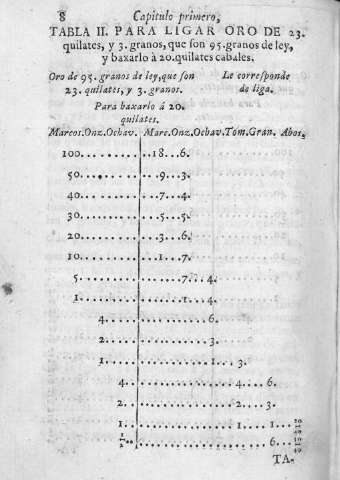 8 Capitulo primero,
TABLA II. PARA LIGAR ORO DE 23.
quilates, y 3. granos, que ſon 95. granos de ley,
y baxarlo à 20. quilates cabales.
Oro de 95. granos de ley, que ſon Le correſponde
23. quilates, y 3. granos. de liga.
Para baxarlo à 20.
quilates.
Marcos. Onz. Ochav. Marc. Onz. Ochav. Tom. Gran. Abos.
100. 18. 6.
50. 9. 3.
40. 7. 4.
30. 5. 5.
20. 3. 6.
10. 1. 7.
5. 7. 4.
1. 1. 4.
4. 6.
2. 3.
1. 1. 3.
4. 4. 6.
2. 2. 3.
1. 1. 1.
1/2 6.
TA-